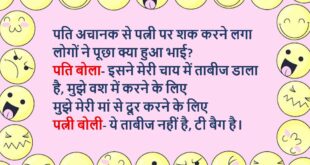 पति अचानक से पत्नी पर शक करने लगा
लोगों ने पूछा क्या हुआ भाई?
पति बोला- इसने मेरी चाय में ताबीज डाला
है, मुझे वश में करने के लिए
मुझे मेरी मां से दूर करने के लिए
पत्नी बोली- ये ताबीज नहीं है, टी बैग है।